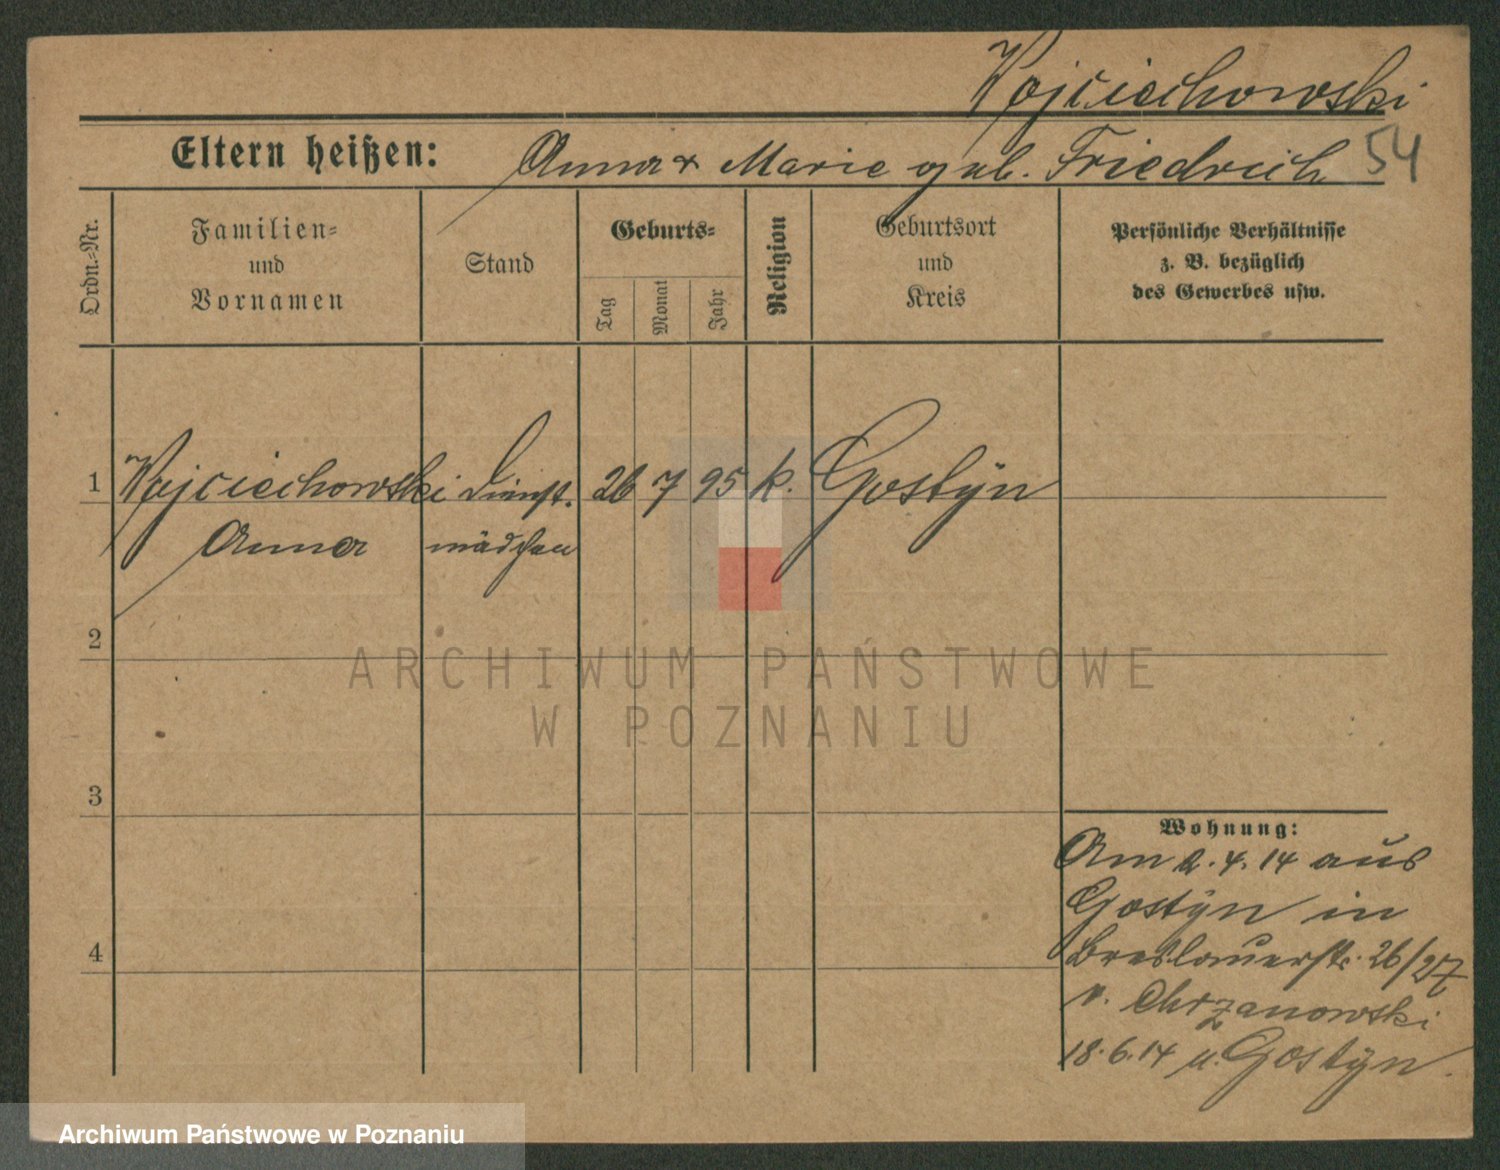 Wojciechowski
Eltern heißen: Anna + Marie geb. Friedrich 54
Ordn.-Nr.
Familien-
und
Vornamen
Stand
Geburts-
Tag
Monat
Jahr
Religion
Geburtsort
und
Kreis
Persönliche Verhältnisse
z. B. bezüglich
des Gewerbes usw.
1 Wojciechowski Dienst. 26 7 95 k. Gostyn
Anna mädchen
2
ARCHIWUM PAŃSTWOWE
W POZNANIU
3
Wohnung:
Am 2.4.14 aus
Gostyn in
4
Breslauerstr. 26/27
v. Chrzanowski
18.6.14 n. Gostyn.
Archiwum Państwowe w Poznaniu